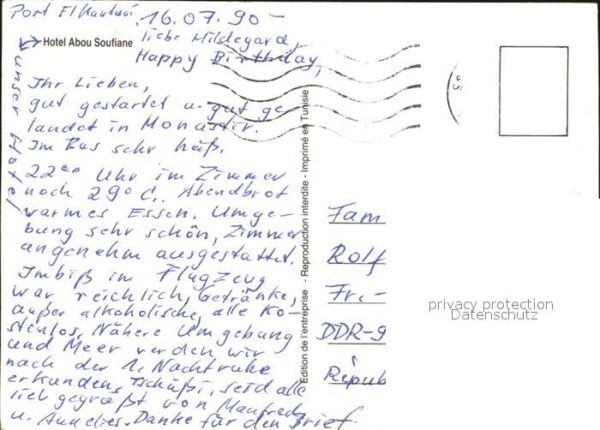 Port El Kantaoui, 16.07.90 –
Hotel Abou Soufiane
unser Hotel
liebe Hildegard,
Happy Birthday,
Ihr Lieben,
gut gestartet u. gut ge-
landet in Monastir.
Im Bus sehr heiß.
22⁰⁰ Uhr im Zimmer
noch 29° C. Abendbrot
warmes Essen. Umge-
bung sehr schön, Zimmer
angenehm ausgestattet.
Imbiß im Flugzeug
war reichlich, Getränke,
außer alkoholische, alle ko-
stenlos. Nähere Umgebung
und Meer werden wir
nach der 1. Nachtruhe
erkunden. Tschüßi, seid alle
lieb gegrüßt von Manfred
u. Annelies. Danke für den Brief.
Edition de l'entreprise - Reproduction interdite - Imprimé en Tunisie
Fam
Rolf
Fr.-
DDR-9
Répub
privacy protection
Datenschutz